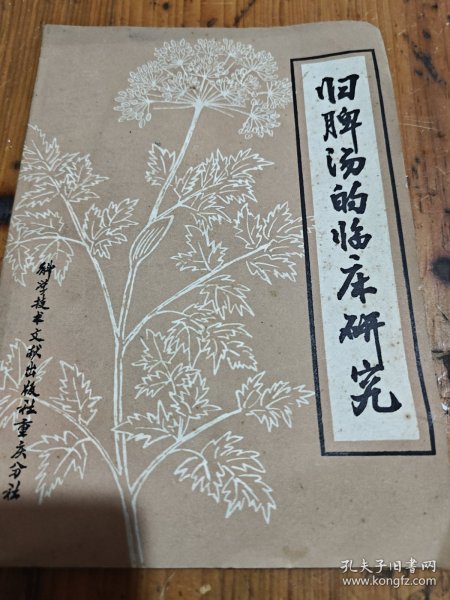 归脾汤的临床研究
科学技术文献出版社重庆分社
孔夫子旧书网
www.kongfz.com